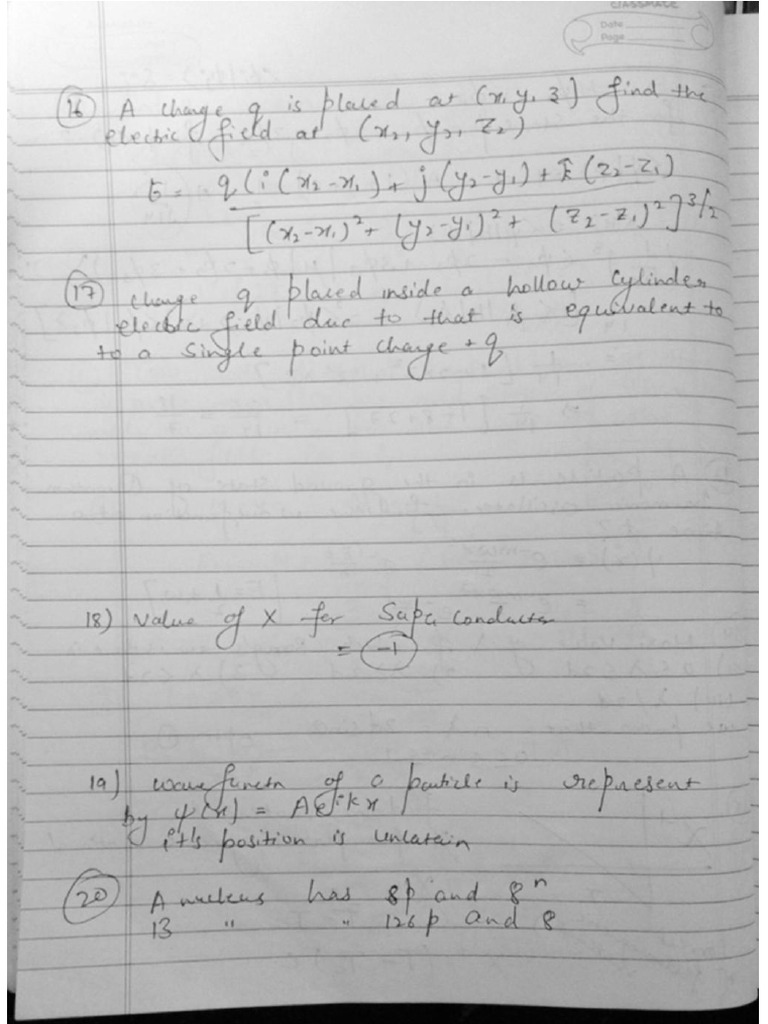 CLASSMATE
Date
Page
16 A charge q is placed at (x, y, z) find the
electric field at (x2, y2, z2)
E = q(i(x2-x1)+ j(y2-y1)+ k̂(z2-z1)
[(x2-x1)²+ (y2-y1)²+ (z2-z1)²]3/2
17 charge q placed inside a hollow cylinder
electric field due to that is equivalent to
to a single point charge + q
18) value of X for Supe conductor
= -1
19) wave functn of a particle is represent
by ψ(x) = Ae^ikx
it's position is
20 A nucleus has 8p and 8n
13 " " 126p and 8